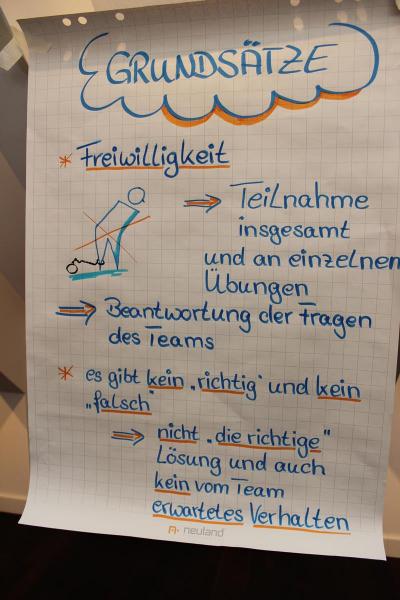 GRUNDSÄTZE
* Freiwilligkeit
⇒ Teilnahme
insgesamt
und an einzelnen
Übungen
⇒ Beantwortung der Fragen
des Teams
* es gibt kein „richtig" und kein
„falsch"
⇒ nicht „die richtige"
Lösung und auch
kein vom Team
erwartetes Verhalten
neuland